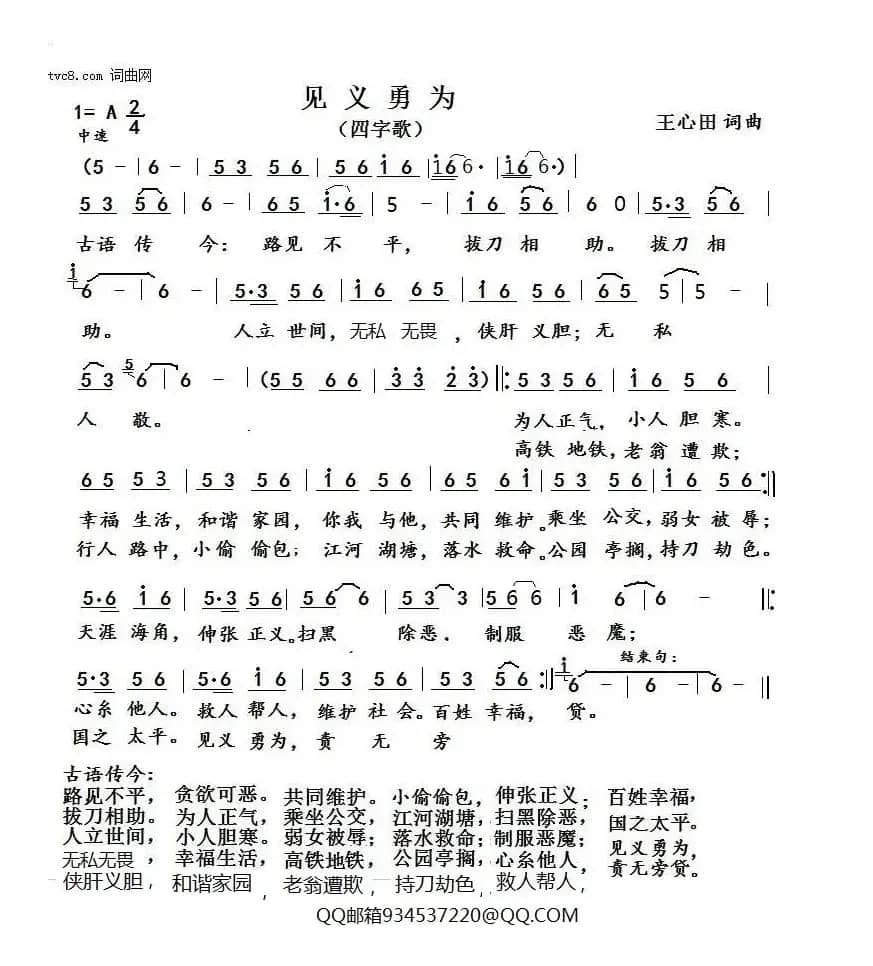 tvc8.com 词曲网
见义勇为
1= A 2/4
（四字歌）
王心田 词曲
中速
(5 - | 6 - | 5 3 5 6 | 5 6 i 6 | i6 6· | i6 6·) |
5 3 5 6 | 6 - | 6 5 i·6 | 5 - | i 6 5 6 | 6 0 | 5·3 5 6 |
古语 传 今： 路见 不 平， 拔刀 相 助。 拔刀 相
i 6 - | 6 - | 5·3 5 6 | i 6 6 5 | i 6 5 6 | 6 5 5 | 5 - |
助。 人立 世间，无私 无畏 ，侠肝 义胆；无 私
5 3 5 6 | 6 - | (5 5 6 6 | 3 3 2 3) |: 5 3 5 6 | i 6 5 6 |
人 敬。 为人正气， 小人 胆 寒。
高铁 地铁，老翁 遭 欺；
6 5 5 3 | 5 3 5 6 | i 6 5 6 | 6 5 6 i | 5 3 5 6 | i 6 5 6 :|
幸福 生活，和谐 家园， 你我 与他，共同 维护。乘坐 公交，弱女 被 辱；
行人 路中，小偷 偷包；江河 湖塘，落水 救命。公园 亭搁，持刀 劫色。
5·6 i 6 | 5·3 5 6 | 5 6 6 | 5 3 3 | 5 6 6 | i 6 | 6 - :|
天涯 海角，伸张 正义。扫黑 除恶、 制服 恶 魔；
结束句：
5·3 5 6 | 5·6 i 6 | 5 3 5 6 | 5 3 5 6 :| i 6 - | 6 - | 6 - |
心系 他人。 救人 帮人，维护 社会。百姓 幸福， 贷。
国之 太平。 见义 勇为，责 无 旁
古语传今：
路见不平， 贪欲可恶。 共同维护。 小偷偷包， 伸张正义； 百姓幸福，
拔刀相助。 为人正气， 乘坐公交， 江河湖塘， 扫黑除恶， 国之太平。
人立世间， 小人胆寒。 弱女被辱； 落水救命； 制服恶魔； 见义勇为，
无私无畏 ， 幸福生活， 高铁地铁， 公园亭搁， 心系他人， 责无旁贷。
侠肝义胆， 和谐家园 ， 老翁遭欺 ， 持刀劫色， 救人帮人，
QQ邮箱934537220@QQ.COM